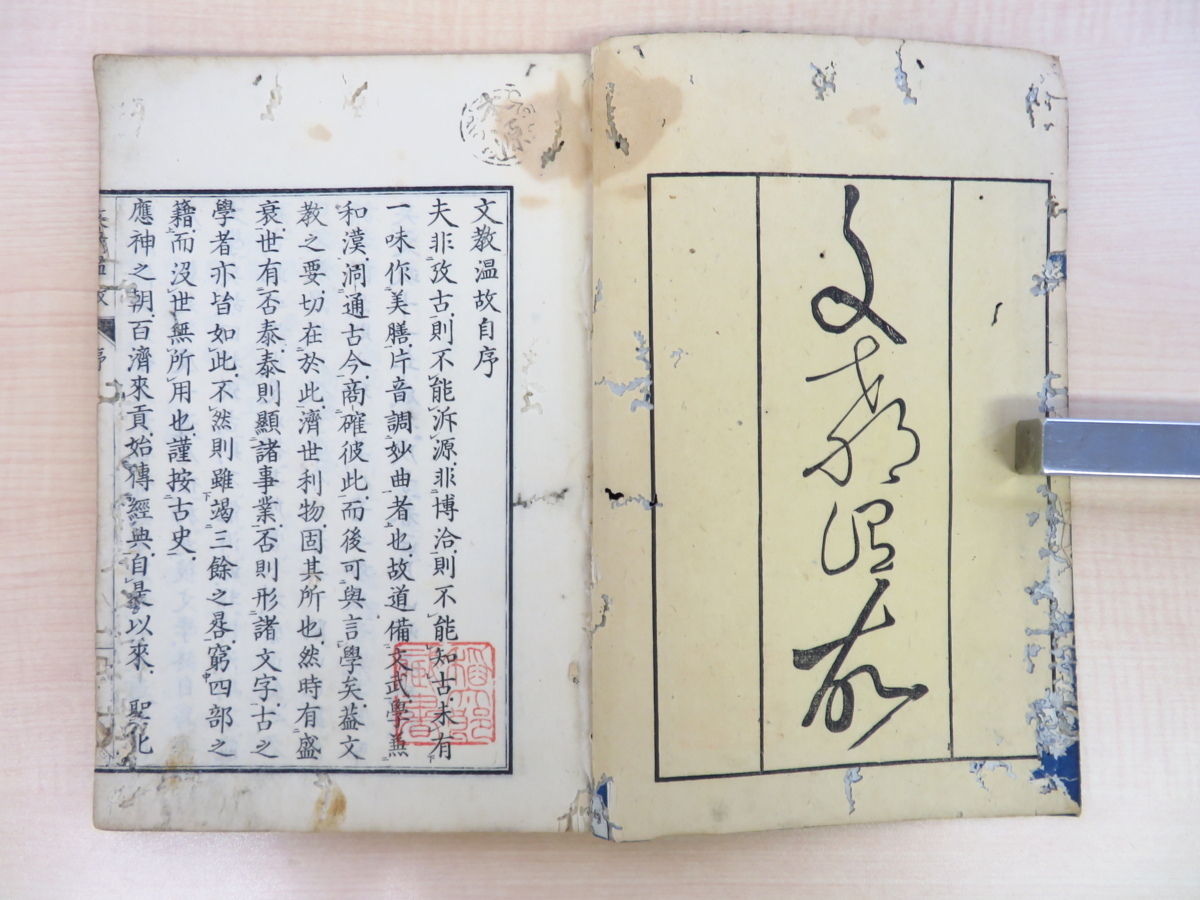 文教温故
文教温故自序
夫非攷古則不能泝源非博洽則不能知古未有
一味作美膳片音調妙曲者也故道備文武學兼
和漢洞通古今商確彼此而後可與言學矣葢文
教之要切在於此濟世利物固其所也然時有盛
衰世有否泰泰則顯諸事業否則形諸文字古之
學者亦皆如此不然則雖竭三餘之晷窮四部之
籍而没世無所用也謹按古史
應神之朝百濟來貢始傳經典自是以來聖化
序